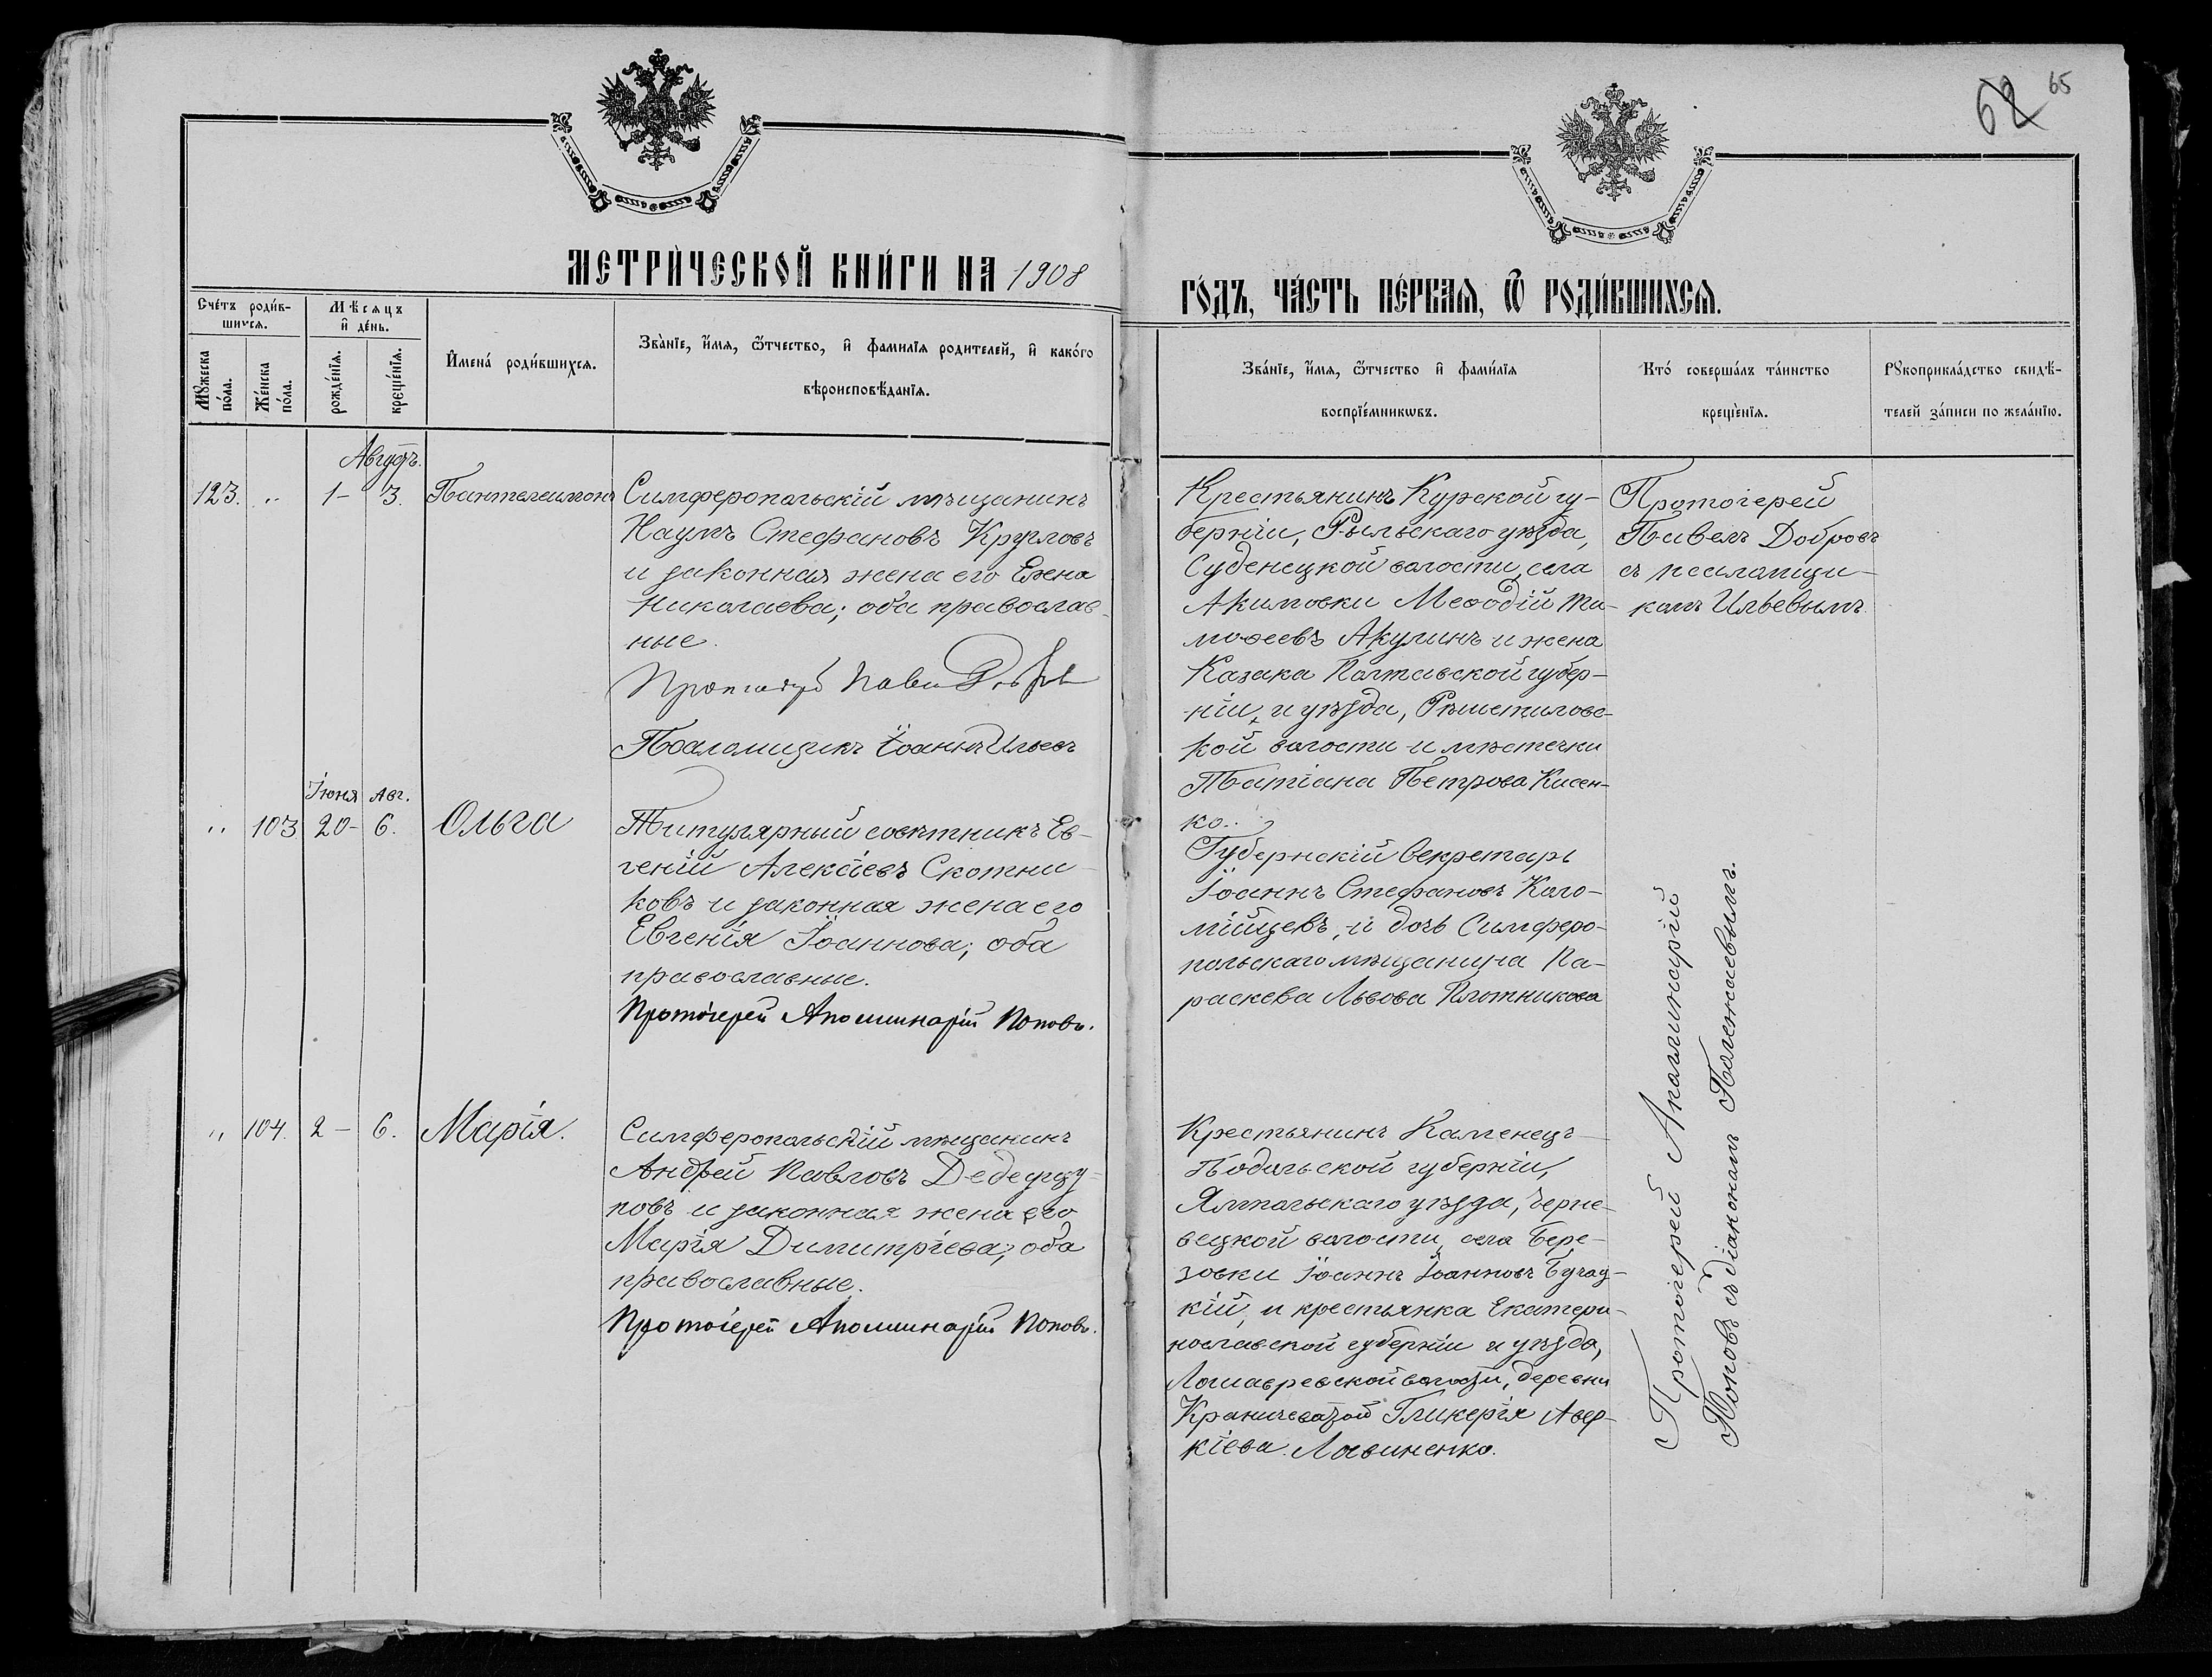 62 65
МЕТРИ́ЧЕСКОЙ КНИ́ГИ НА 1908
ГО́ДЪ, ЧА́СТЬ ПЕ́РВАЯ, Ѡ РОДИ́ВШИХСЯ.
Сче́тъ роди́в-
шихся.
Мꙋ́жеска по́ла.
Же́нска по́ла.
Мѣ́сяцъ
и҆ де́нь.
рожде́нїя.
креще́нїя.
И҆мена́ роди́вшихся.
Зва́нїе, и҆́мя, ѻ҆́тчество, и҆ фамилїя родителей, и҆ како́го
вѣроисповѣ́данїя.
Зва́нїе, и҆́мя, ѻ҆́тчество и҆ фами́лїя
воспрїе́мникѡвъ.
Кто́ соверша́лъ та́инство
креще́нїя.
Рꙋкоприкла́дство свидѣ́-
телей за́писи по жела́нїю.
Августъ.
123. „ 1- 3. Пантелеимонъ
Симферопольскій мѣщанинъ
Наумъ Стефановъ Кругловъ
и законная жена его Елена
Николаева; оба православ-
ные.
Протоіерей Павелъ Добровъ
Псаломщикъ Іоаннъ Ильевъ
Крестьянинъ Курской гу-
берніи, Рыльскаго уѣзда,
Суденецкой волости, села
Акимовки Меѳодій Ти-
моѳеевъ Акулинъ и жена
Казака Полтавской губер-
ніи, и уѣзда, Рѣшетиловс-
кой волости и мѣстечка
Татіана Петрова Кисен-
ко.
Протоіерей
Павелъ Добровъ
съ псаломщи-
комъ Ильевымъ.
Іюня Авг.
„ 103 20- 6. Ольга
Титулярный совѣтникъ Ев-
геній Алексіевъ Скотни-
ковъ и законная жена его
Евгенія Іоаннова; оба
православные.
Протоіерей Аполлинарій Поповъ.
Губернскій Секретарь
Іоаннъ Стефановъ Коло-
мійцевъ, и дочь Симферо-
польскаго мѣщанина Па-
раскева Львова Плотникова
„ 104. 2- 6. Марія.
Симферопольскій мѣщанинъ
Андрей Павловъ
и законная жена его
Марія Димитріева; оба
православные.
Протоіерей Аполлинарій Поповъ.
Крестьянинъ Каменецъ-
Подольской губерніи,
Ямпольскаго уѣзда, Черне-
вецкой волости, села Бере-
зовки Іоаннъ Іоанновъ Бучац-
кій, и крестьянка Екатери-
нославской губерніи и уѣзда,
волости, деревни
Гликерія Авер-
кіева Лавиненко.
Протоіерей Аполлинарій
Поповъ съ діакономъ Полежаевымъ.